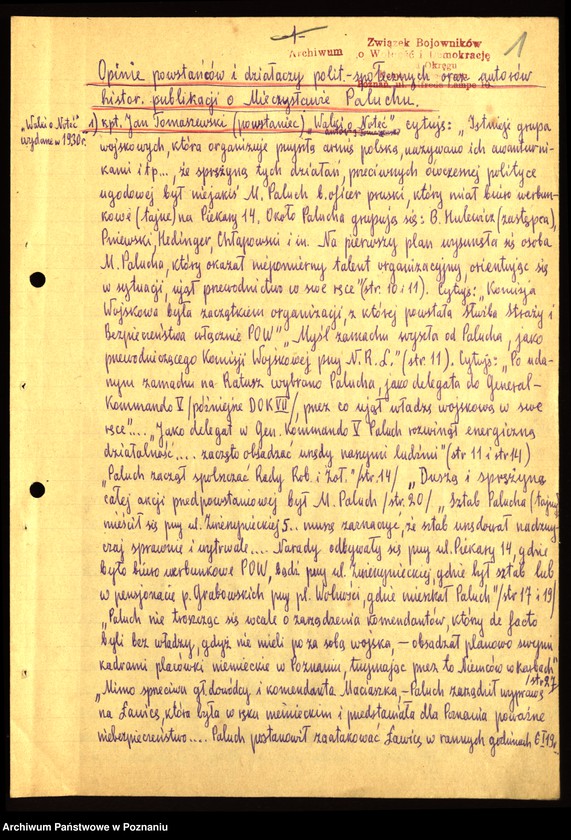 1
Związek Bojowników
Archiwum o Wolność i Demokrację
Okręgu
Opinie powstańców i działaczy polit.-społecznych oraz autorów
histor. publikacji o Mieczysławie Paluchu.
„Walki o Noteć”
wydane w 1930 r.
1) kpt. Jan Tomaszewski (powstaniec) „Walki o Noteć” cytuję: „Istnieje grupa
wojskowych, która organizuje przyszłą armię polską, nazywano ich awanturni-
kami itp..., że sprężyną tych działań, przeciwnych ówczesnej polityce
ugodowej był niejakiś M. Paluch b. oficer pruski, który miał biuro werbun-
kowe (tajne) na Piekary 14. Około Palucha grupują się: B. Hulewicz (zastępca),
Pniewski, Hedinger, Chłapowski i in. Na pierwszy plan wysunęła się osoba
M. Palucha, który okazał niepomierny talent organizacyjny, orientując się
w sytuacji, ujął przewodnictwo w swe ręce” (str. 10 i 11). Cytuję: „Komisja
Wojskowa była zaczątkiem organizacji, z której powstała Służba Straży i
Bezpieczeństwa włącznie POW” „Myśl zamachu wyszła od Palucha, jako
przewodniczącego Komisji Wojskowej przy N.R.L.” (str. 11). Cytuję: „Po uda-
nym zamachu na Ratusz wybrano Palucha, jako delegata do General-
Kommando V /późniejsze DOK VII/, przez co ujął władzę wojskową w swe
ręce”... „Jako delegat w Gen. Kommando V Paluch rozwinął energiczną
działalność.... zaczęto obsadzać urzędy naszymi ludźmi” (str 11 i str 14)
„Paluch zaczął spolszczać Rady Rob. i Żoł.” /str. 14/ „Duszą i sprężyną
całej akcji przedpowstaniowej był M. Paluch /str. 20/ „Sztab Palucha (tajny)
mieścił się przy ul. Zwierzynieckiej 5.. muszę zaznaczyć, że sztab urzędował nadzwy-
czaj sprawnie i wytrwale.... Narady odbywały się przy ul. Piekary 14, gdzie
było biuro werbunkowe POW, bądź przy ul. Zwierzynieckiej, gdzie był sztab lub
w pensjonacie p. Grabowskich przy pl. Wolności, gdzie mieszkał Paluch” /str 17 i 19/
„Paluch nie troszcząc się wcale o zarządzenia komendantów, który de facto
byli bez władzy, gdyż nie mieli poza sobą wojska, – obsadzał planowo swymi
kadrami placówki niemieckie w Poznaniu, trzymając przez to Niemców w karbach”
/str 27
„Mimo sprzeciwu gł. dowódcy i komendanta Maciaszka, – Paluch zarządził wyprawę
na Ławicę, która była w ręku niemieckim i przedstawiała dla Poznania poważne
niebezpieczeństwo.... Paluch postanowił zaatakować Ławicę w rannych godzinach 6 I 19 r..
Archiwum Państwowe w Poznaniu